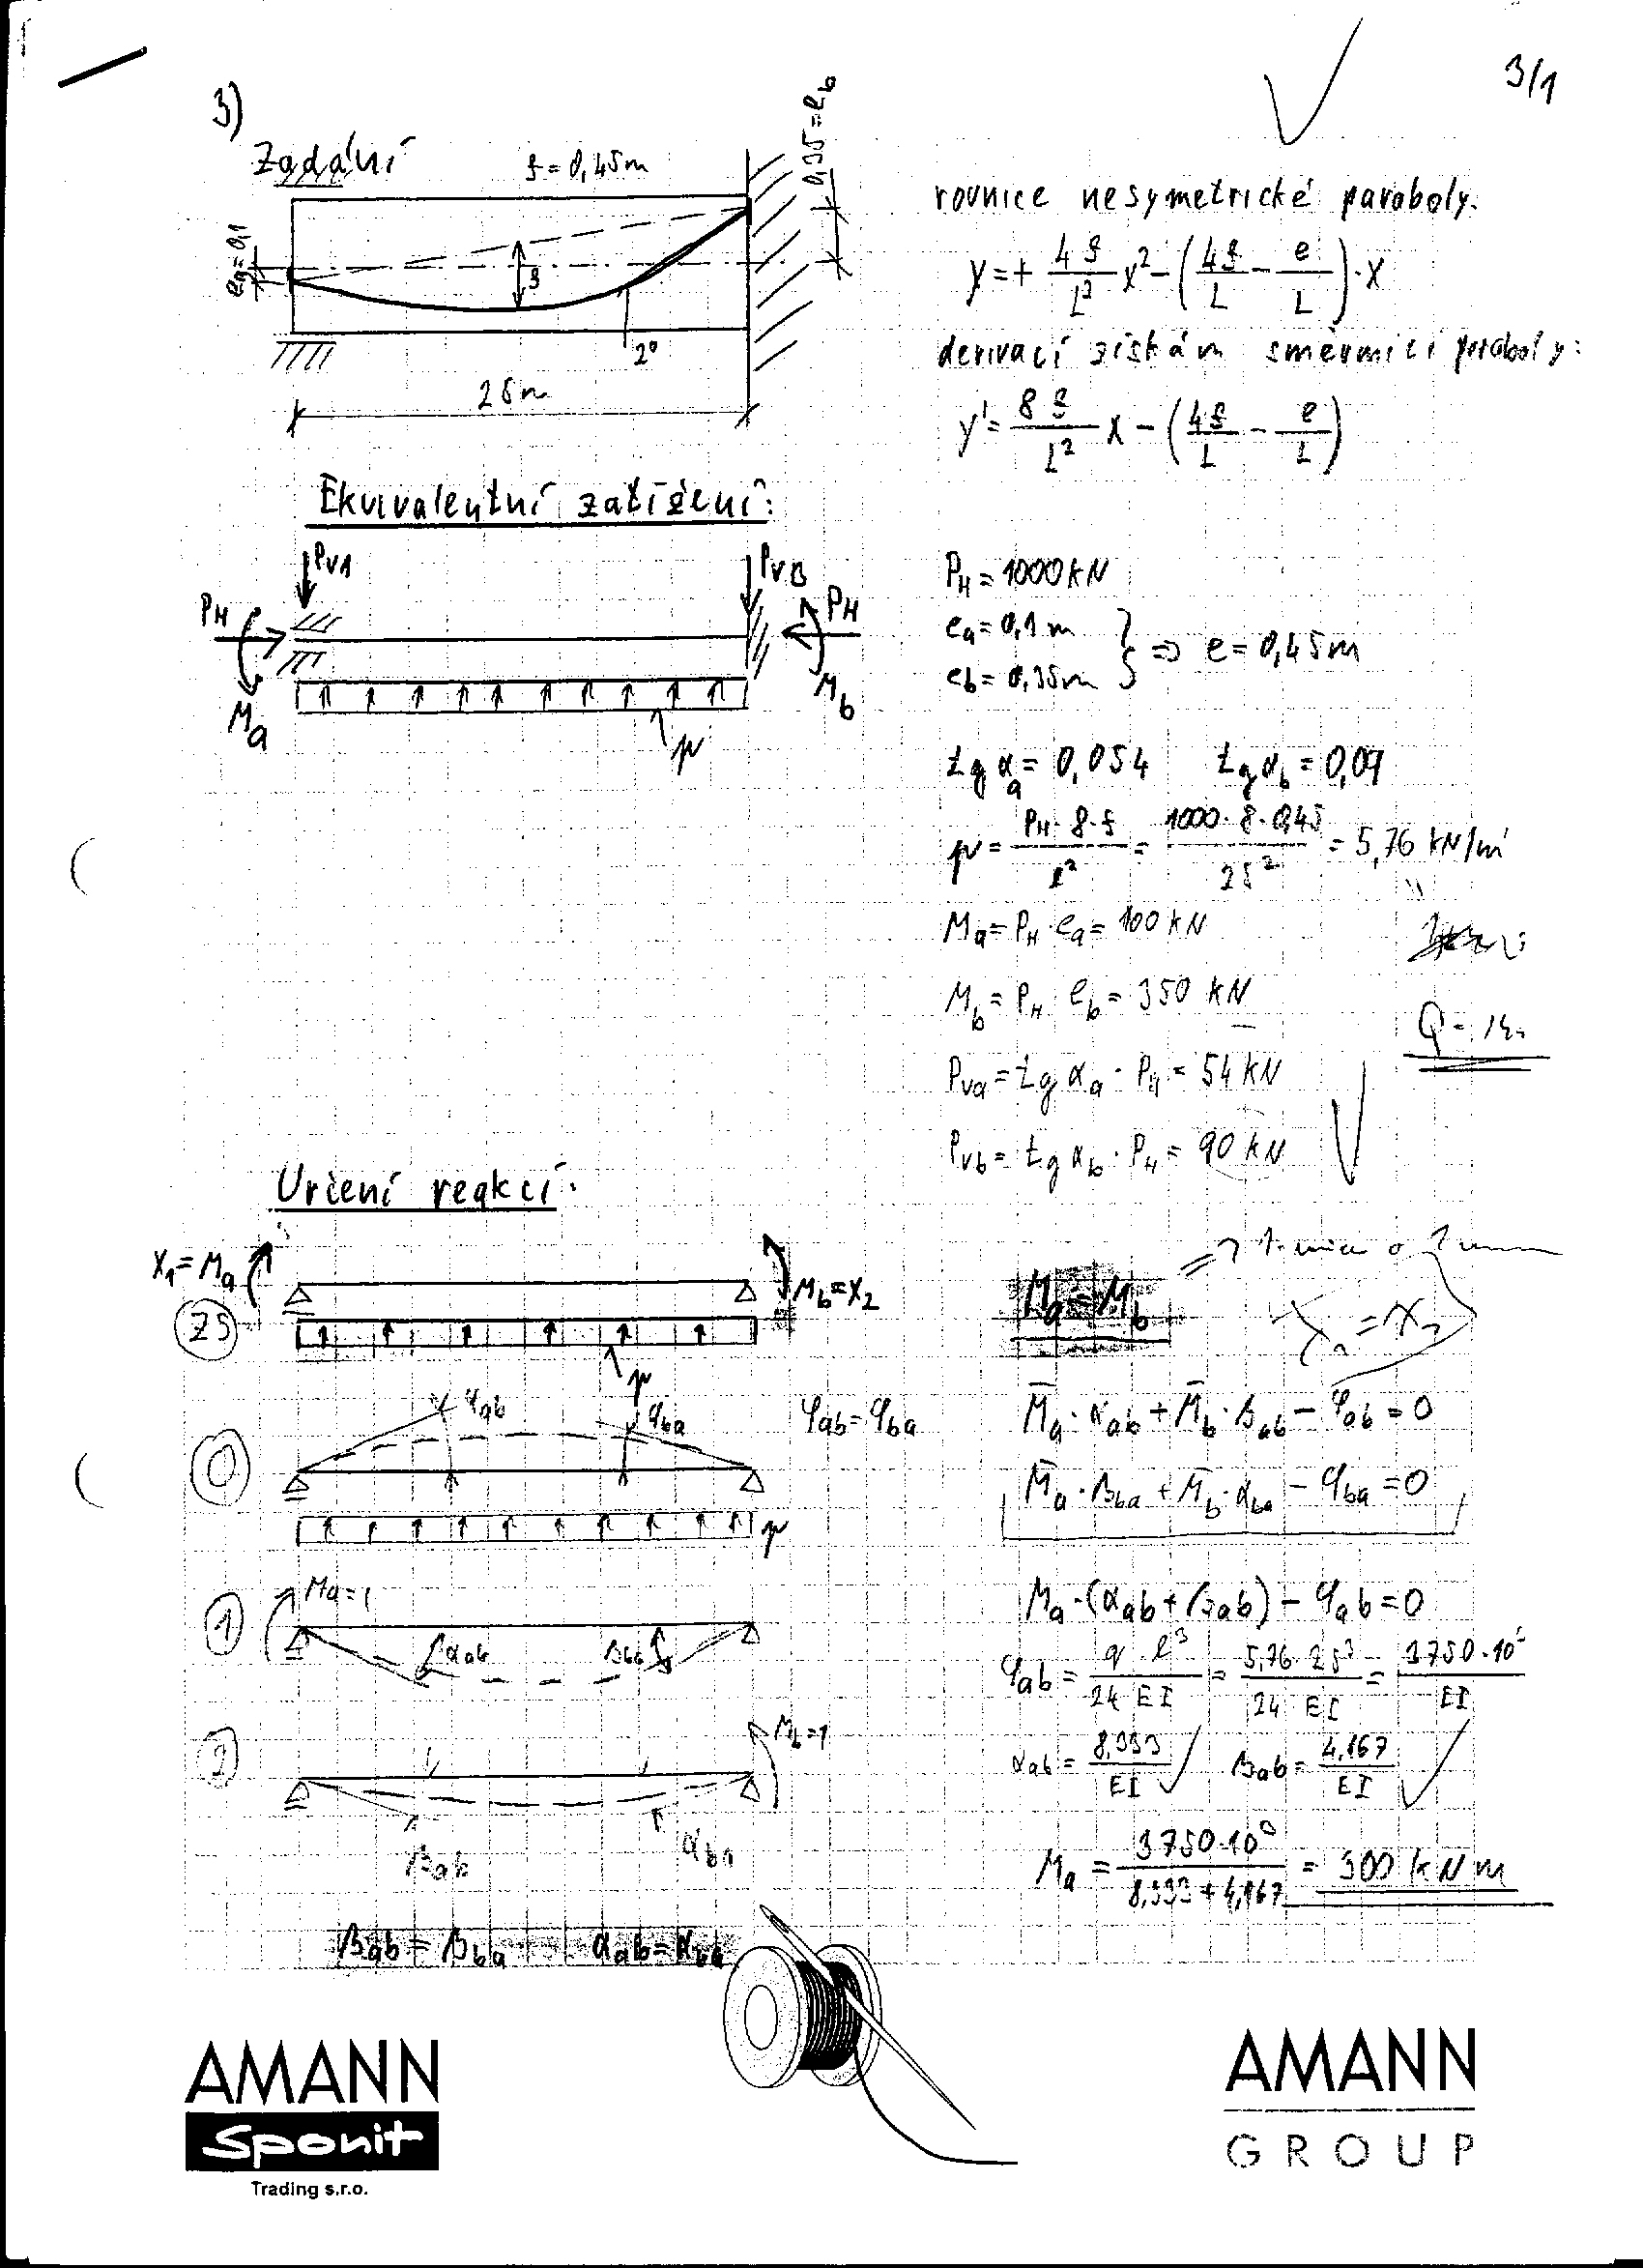 3/1
3)
Zadání
f = 0,45m
0,35 = eb
ea = 0,1
f
2°
25m
rovnice nesymetrické paraboly:
y = + 4f/l² x² - (4f/L - e/L) · x
derivací získám směrnici paraboly:
y' = 8f/l² x - (4f/L - e/L)
Ekvivalentní zatížení:
PVA
PVB
PH
PH
Ma
Mb
p
PH = 1000 kN
ea = 0,1 m
eb = 0,35m
} => e = 0,45m
tg αa = 0,054 tg αb = 0,09
p = PH · 8 · f / l² = 1000 · 8 · 0,45 / 25² = 5,76 kN/m'
Ma = PH · ea = 100 kN
Mb = PH · eb = 350 kN
Pva = tg αa · PH = 54 kN
Pvb = tg αb · PH = 90 kN
Určení reakcí:
X1 = Ma
Mb = X2
ZS
p
Ma = Mb
φab
φba
φab = φba
0
p
M̄a · αab + M̄b · βab - φab = 0
M̄a · βba + M̄b · αba - φba = 0
1
Ma = 1
αab
βba
Ma · (αab + βab) - φab = 0
φab = q · l³ / 24 EI = 5,76 · 25³ / 24 EI = 3750 · 10⁰ / EI
2
Mb = 1
βab
αba
αab = 8,333 / EI βab = 4,167 / EI
Ma = 3750 · 10⁰ / 8,333 + 4,167 = 300 kNm
βab = βba αab = αba
AMANN
Sponit
Trading s.r.o.
AMANN
GROUP